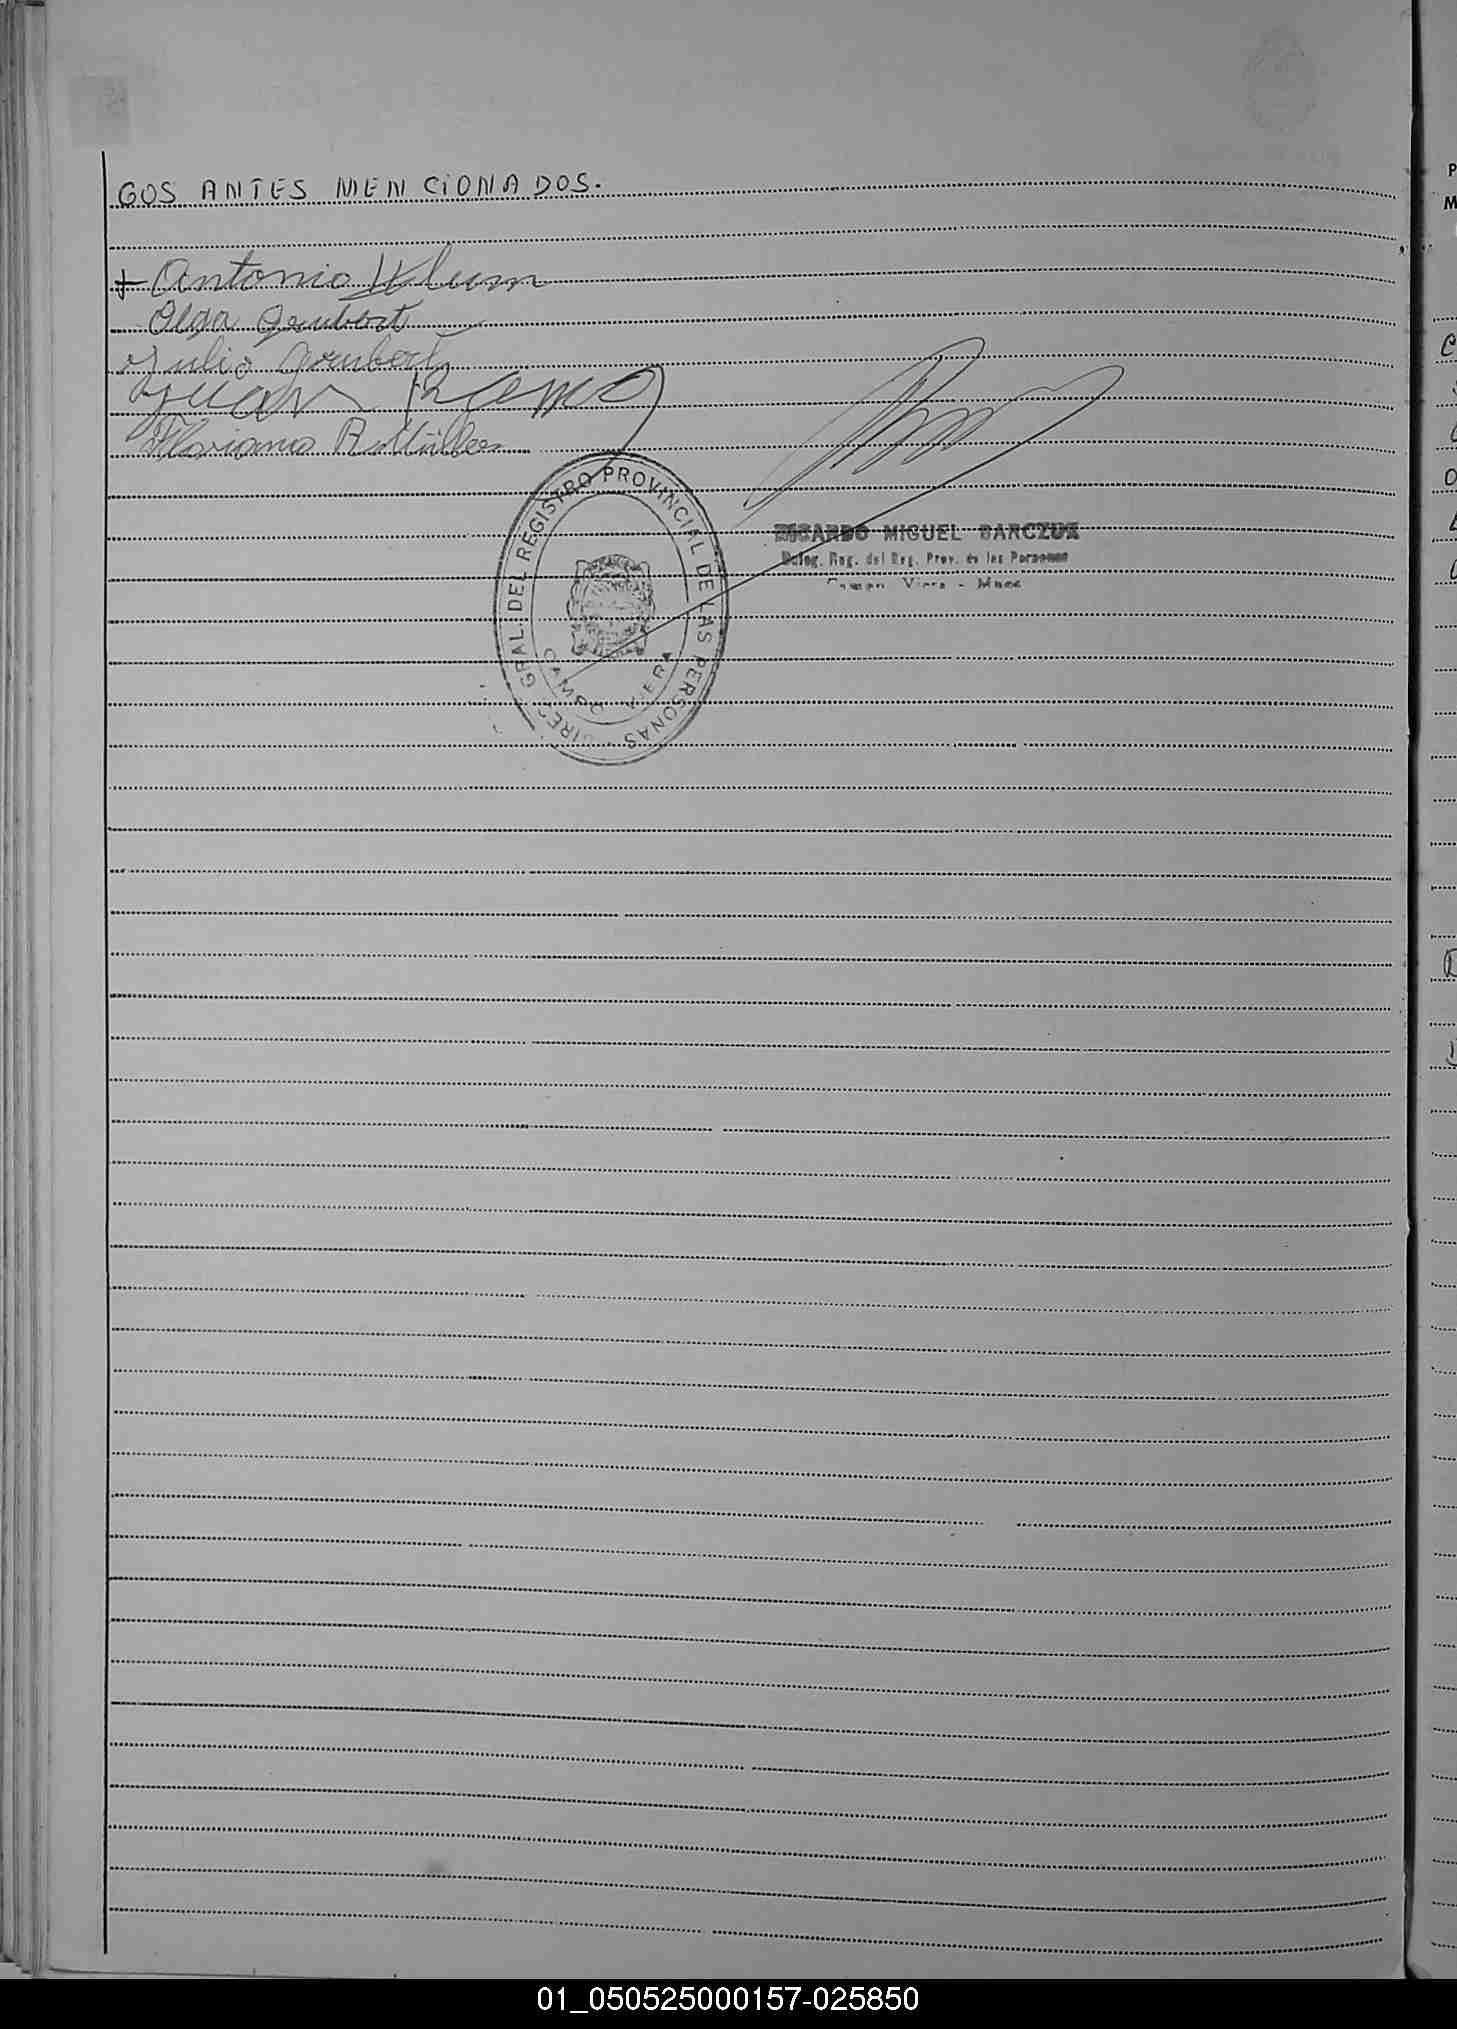 GOS ANTES MENCIONADOS.
Antonio Klum
Olga Grubert
Julio Grubert
Juan Ramo
Floriano
DIREC. GRAL. DEL REGISTRO PROVINCIAL DE LAS PERSONAS
CAMPO VIERA
RICARDO MIGUEL BARCZUK
Deleg. Reg. del Reg. Prov. de las Personas
Campo Viera - Mnes
01_050525000157-025850